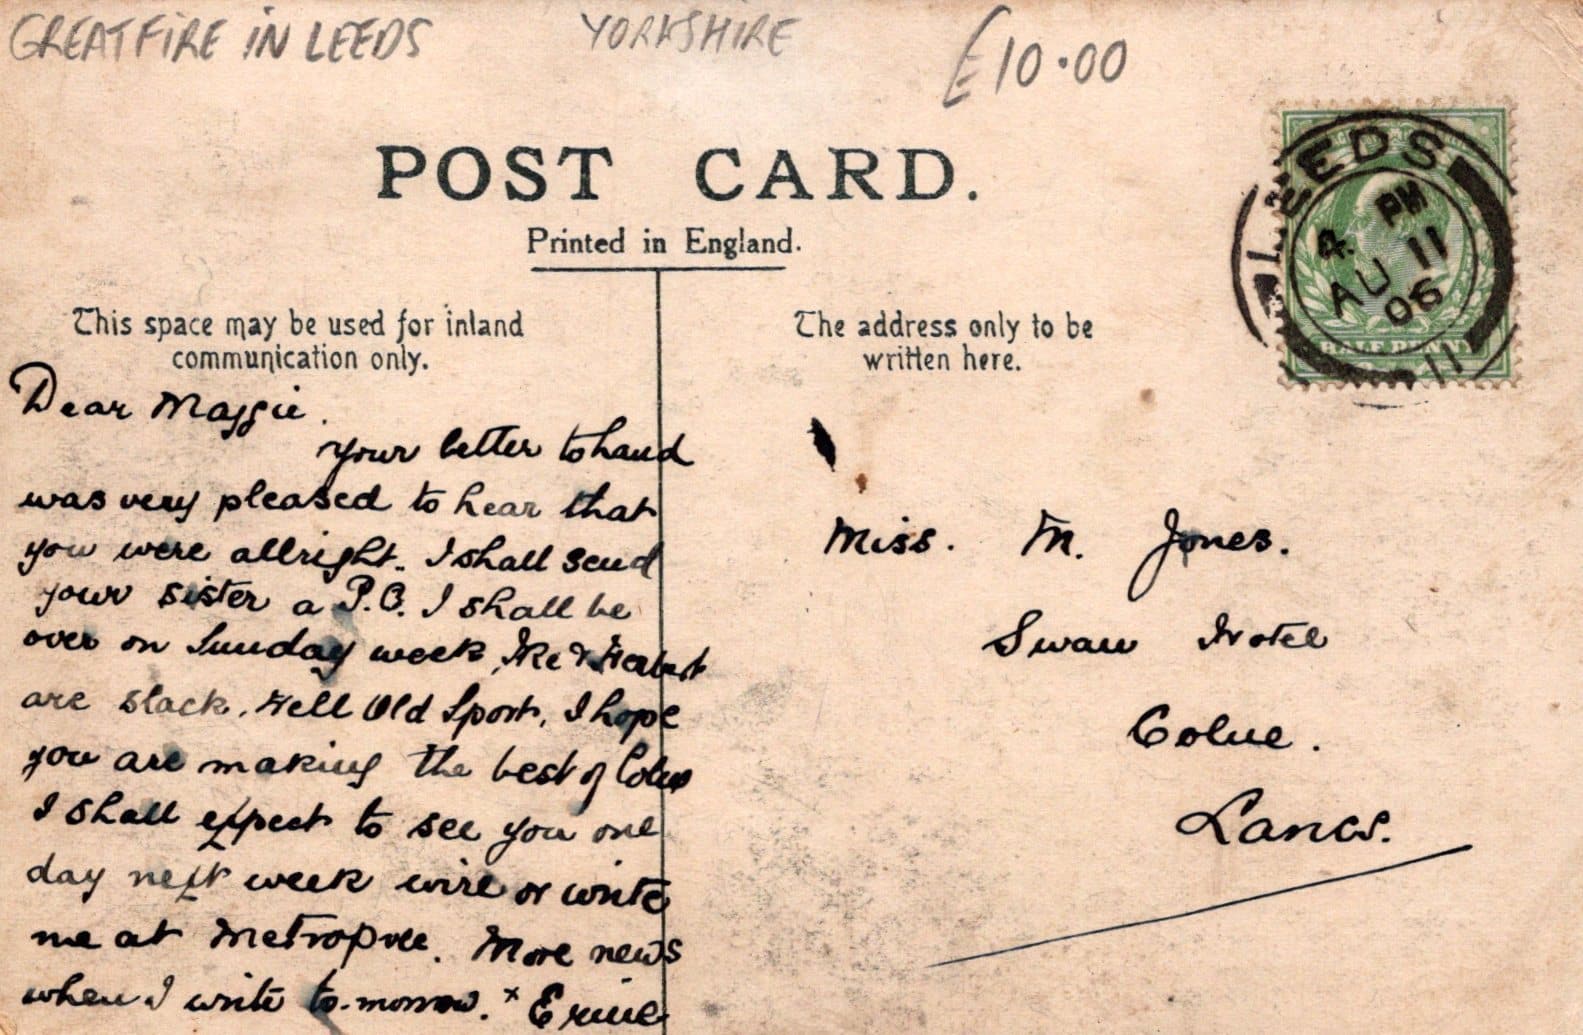 GREAT FIRE IN LEEDS YORKSHIRE £10.00
POST CARD.
Printed in England.
This space may be used for inland
communication only.
The address only to be
written here.
LEEDS
4 PM
AU 11
06
11
HALF PENNY
Dear Maggie.
Your letter to hand
was very pleased to hear that
you were allright. I shall send
your sister a P.O. I shall be
over on Sunday week, Ike & Herbert
are slack. Well Old Sport, I hope
you are making the best of Colne
I shall expect to see you one
day next week wire or write
me at Metropole. More news
when I write to-morrow. x Ernie
Miss. M. Jones.
Swan Hotel
Colne.
Lancs.